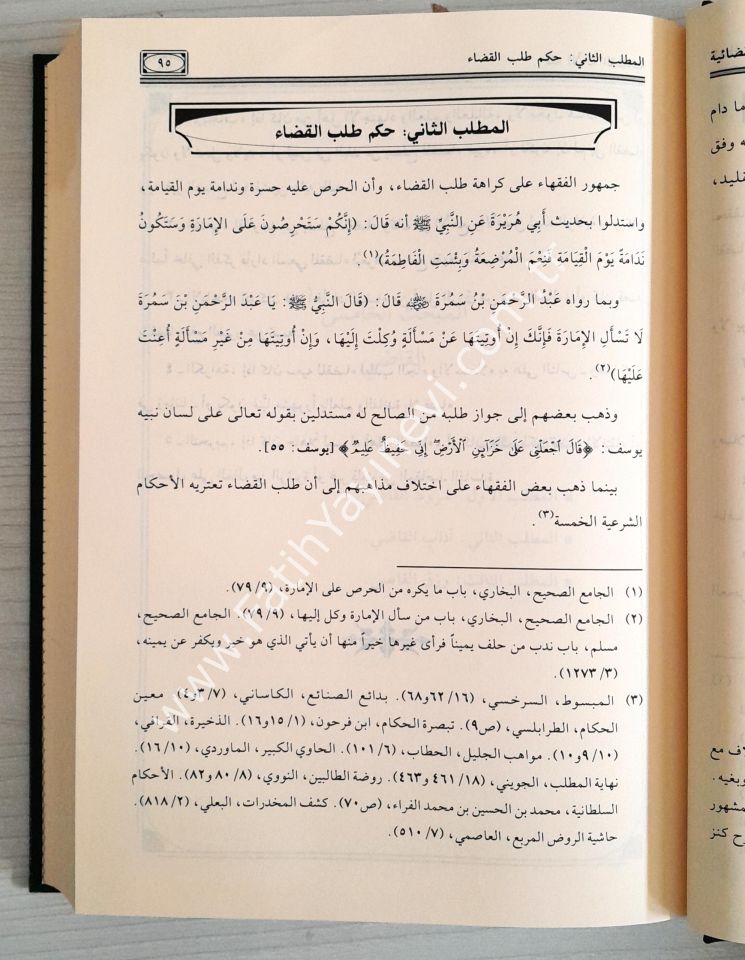 المطلب الثاني: حكم طلب القضاء
٩٥
المطلب الثاني: حكم طلب القضاء
جمهور الفقهاء على كراهة طلب القضاء، وأن الحرص عليه حسرة وندامة يوم القيامة،
واستدلوا بحديث أَبِي هُرَيْرَةَ عَنِ النَّبِيِّ ﷺ أنه قَالَ: (إِنَّكُمْ سَتَحْرِصُونَ عَلَى الإِمَارَةِ وَسَتَكُونُ
نَدَامَةً يَوْمَ الْقِيَامَةِ فَنِعْمَ الْمُرْضِعَةُ وَبِئْسَتِ الْفَاطِمَةُ)(١).
وبما رواه عَبْدُ الرَّحْمَنِ بْنُ سَمُرَةَ ﵁ قَالَ: (قَالَ النَّبِيُّ ﷺ: يَا عَبْدَ الرَّحْمَنِ بْنَ سَمُرَةَ
لَا تَسْأَلِ الإِمَارَةَ فَإِنَّكَ إِنْ أُوتِيتَهَا عَنْ مَسْأَلَةٍ وُكِلْتَ إِلَيْهَا، وَإِنْ أُوتِيتَهَا مِنْ غَيْرِ مَسْأَلَةٍ أُعِنْتَ
عَلَيْهَا)(٢).
وذهب بعضهم إلى جواز طلبه من الصالح له مستدلين بقوله تعالى على لسان نبيه
يوسف: ﴿قَالَ ٱجْعَلْنِى عَلَىٰ خَزَآئِنِ ٱلْأَرْضِ إِنِّى حَفِيظٌ عَلِيمٌ﴾ [يوسف: ٥٥].
بينما ذهب بعض الفقهاء على اختلاف مذاهبهم إلى أن طلب القضاء تعتريه الأحكام
الشرعية الخمسة(٣).
(١) الجامع الصحيح، البخاري، باب ما يكره من الحرص على الإمارة، (٧٩/٩).
(٢) الجامع الصحيح، البخاري، باب من سأل الإمارة وكل إليها، (١٩/٩). الجامع الصحيح،
مسلم، باب ندب من حلف يميناً فرأى غيرها خيراً منها أن يأتي الذي هو خير ويكفر عن يمينه،
(١٢٧٣/٣).
(٣) المبسوط، السرخسي، (٦٢/١٦و٦٨). بدائع الصنائع، الكاساني، (٣/٧و٤). معين
الحكام، الطرابلسي، (ص٩). تبصرة الحكام، ابن فرحون، (١٥/١و١٦). الذخيرة، القرافي،
(٩/١٠و١٠). مواهب الجليل، الحطاب، (١٠١/٦). الحاوي الكبير، الماوردي، (١٦/١٠).
نهاية المطلب، الجويني، (٤٦١/١٨ و٤٦٣). روضة الطالبين، النووي، (٨٠/٨ و٨٢). الأحكام
السلطانية، محمد بن الحسين بن محمد الفراء، (ص٧٠). كشف المخدرات، البعلي، (٨١٨/٢).
حاشية الروض المربع، العاصمي، (٥١٠/٧).
ما دام
ه وفق
قليد،
لاف مع
وبغيه.
مشهور
رح كنز
www.FatihYayinevi.com.tr